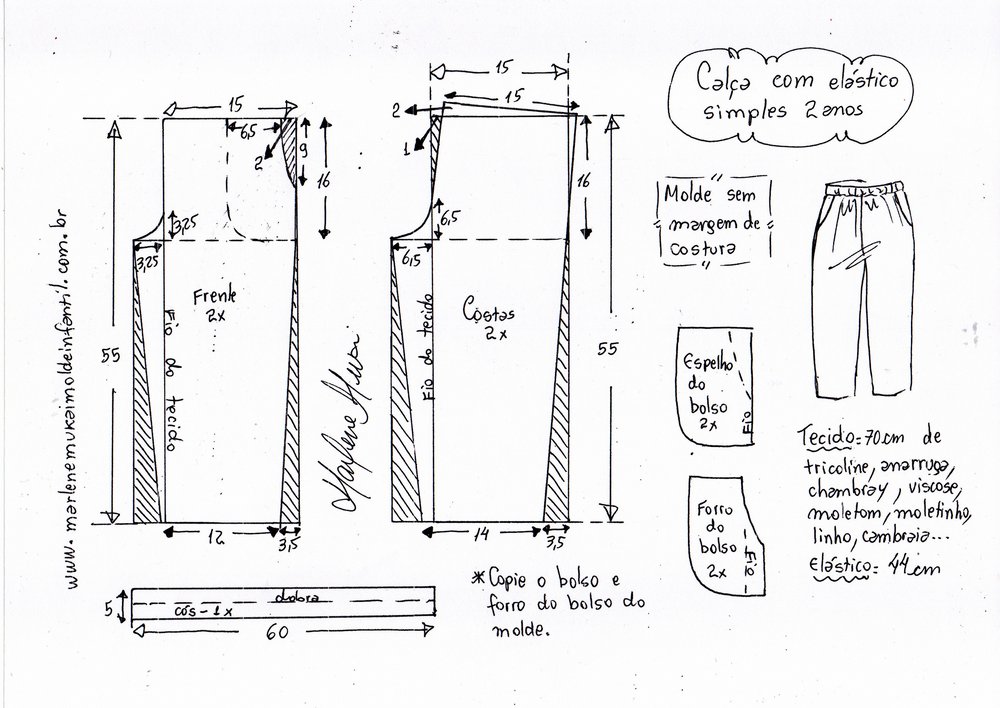 Calça com elástico
simples 2 anos
Molde sem
margem de
costura
www.marlenemukaimoldeinfantil.com.br
15
6,5
2
9
16
3,25
3,25
55
Frente
2x
Fio do tecido
12
3,5
15
15
2
1
16
6,5
6,5
55
Costas
2x
Fio do tecido
14
3,5
Marlene Mukai
Espelho
do
bolso
2x
Fio
Forro
do
bolso
2x
Fio
Tecido: 70cm de
tricoline, anarruga,
chambray, viscose,
moletom, moletinho,
linho, cambraia...
Elástico: 44cm
5
dobra
cós - 1x
60
*Copie o bolso e
forro do bolso do
molde.